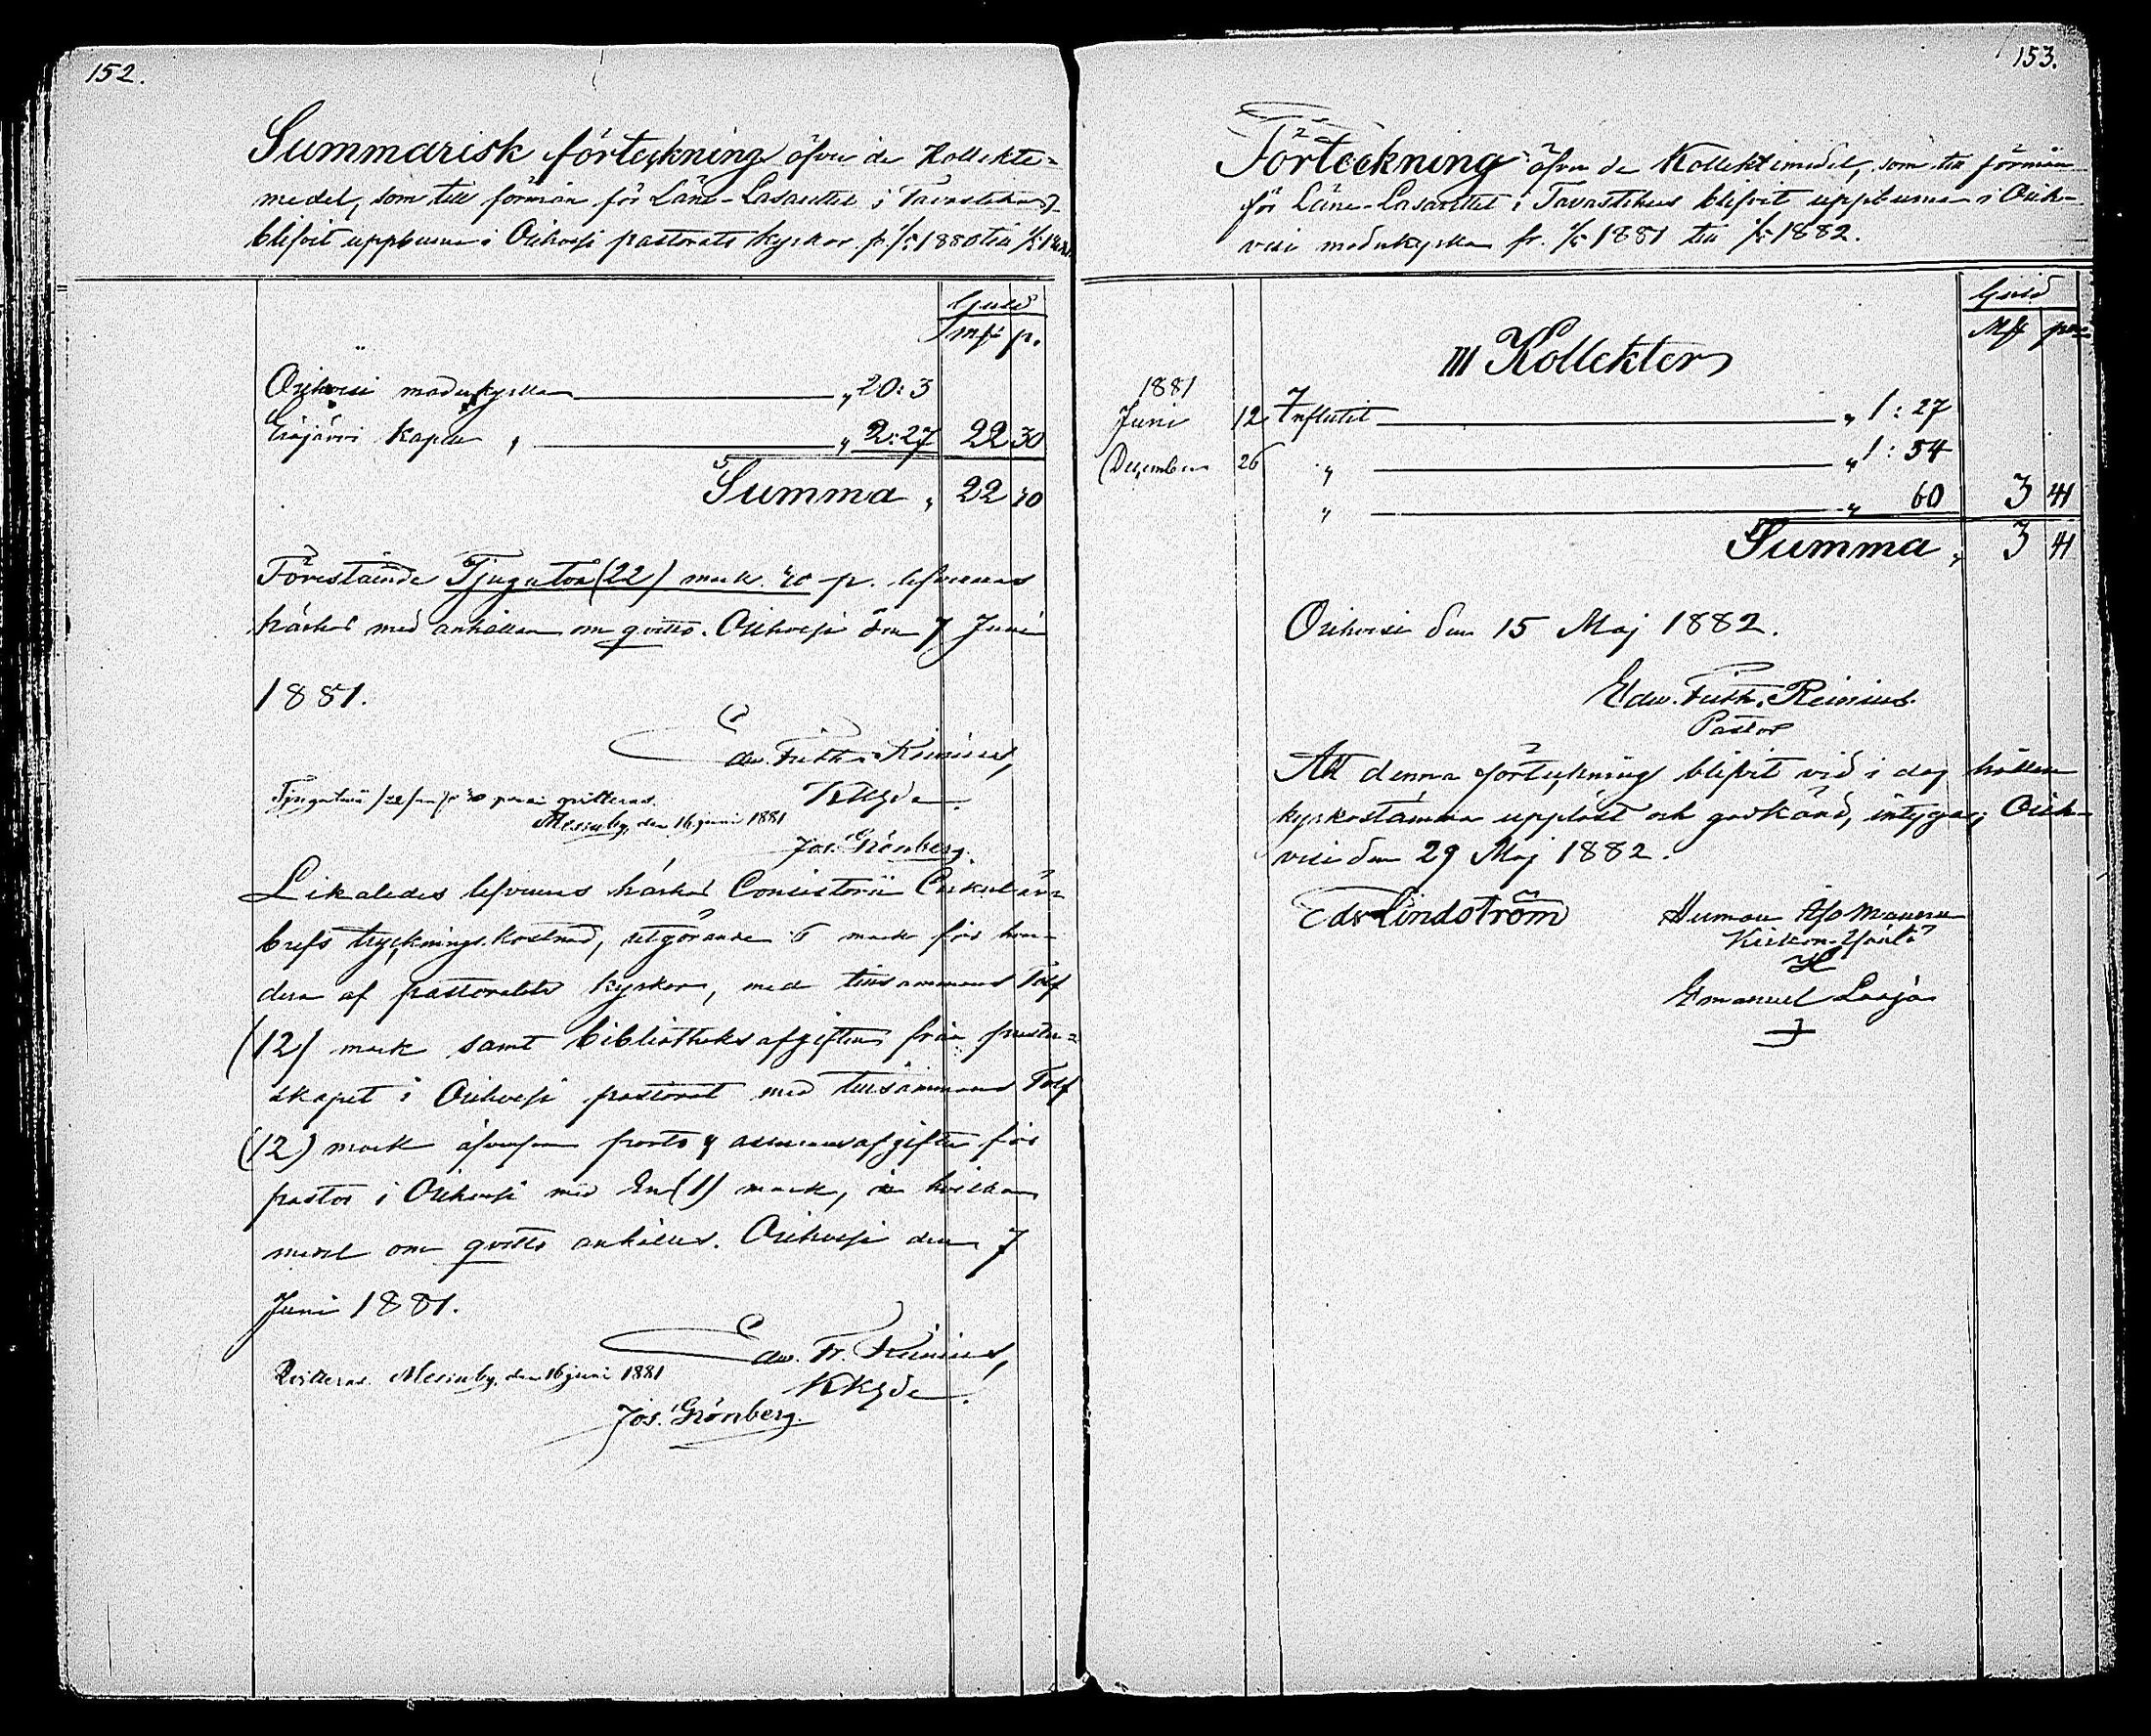 152.
Summarisk förteckning öfver de Kollekte-
medel, som till förmån för Läns-Lasarettet i Tavastehus
blifvit uppburna i Orihvesi pastorats kyrkor fr. 1/5 1880 till 1/5 1881.
Guld
mk p.
Orihvesi moderkyrka " 20: 3
Eräjärvi Kapell " " 2: 27 22 30
Summa " 22 30
Förestående Tjugutvå (22) mark 30 p. lefvereras
härhos med anhållan om qvitto. Orihvesi den 7 Juni
1881.
Edv. Fredr. Reinius,
KKhde
Tjugutvå /22/ mk 30 penni qvitteras.
Messuby, den 16 juni 1881
Jos. Grönberg.
Likaledes lefvereras härhos Consistorii Cirkulär-
brefs tryckningskostnad, utgörande 6 mark för hvar-
dera af pastoratets kyrkor, med tillsammans Tolf
(12) mark samt bibliotheksafgiften från prester-
skapet i Orihvesi pastorat med tillsammans Tolf
(12) mark äfvensom porto & assuransafgifter för
pastor i Orihvesi med En (1) mark, å hvilka
medel om qvitto anhålles. Orihvesi den 7
Juni 1881.
Edv. Fr. Reinius,
KKhde
Qvitteras. Messuby, den 16 juni 1881
Jos. Grönberg.
153.
Förteckning öfver de Kollektmedel, som till förmån
för Läns-Lasarettet i Tavastehus blifvit uppburna i Orih-
vesi moderkyrka fr. 1/5 1881 till 1/5 1882.
Guld
Mk pni
III Kollekter
1881
Juni 12 Influtit " 1: 27
December 26 " " 1: 54
" " 60 3 41
Summa " 3 41
Orihvesi den 15 Maj 1882.
Edv. Fredr. Reinius.
Pastor
Att denna förteckning blifvit vid i dag hållen
kyrkostämma uppläst och godkänd, intyga; Orih-
vesi den 29 Maj 1882.
Edv Lindström Herman
Emanuel Laaja